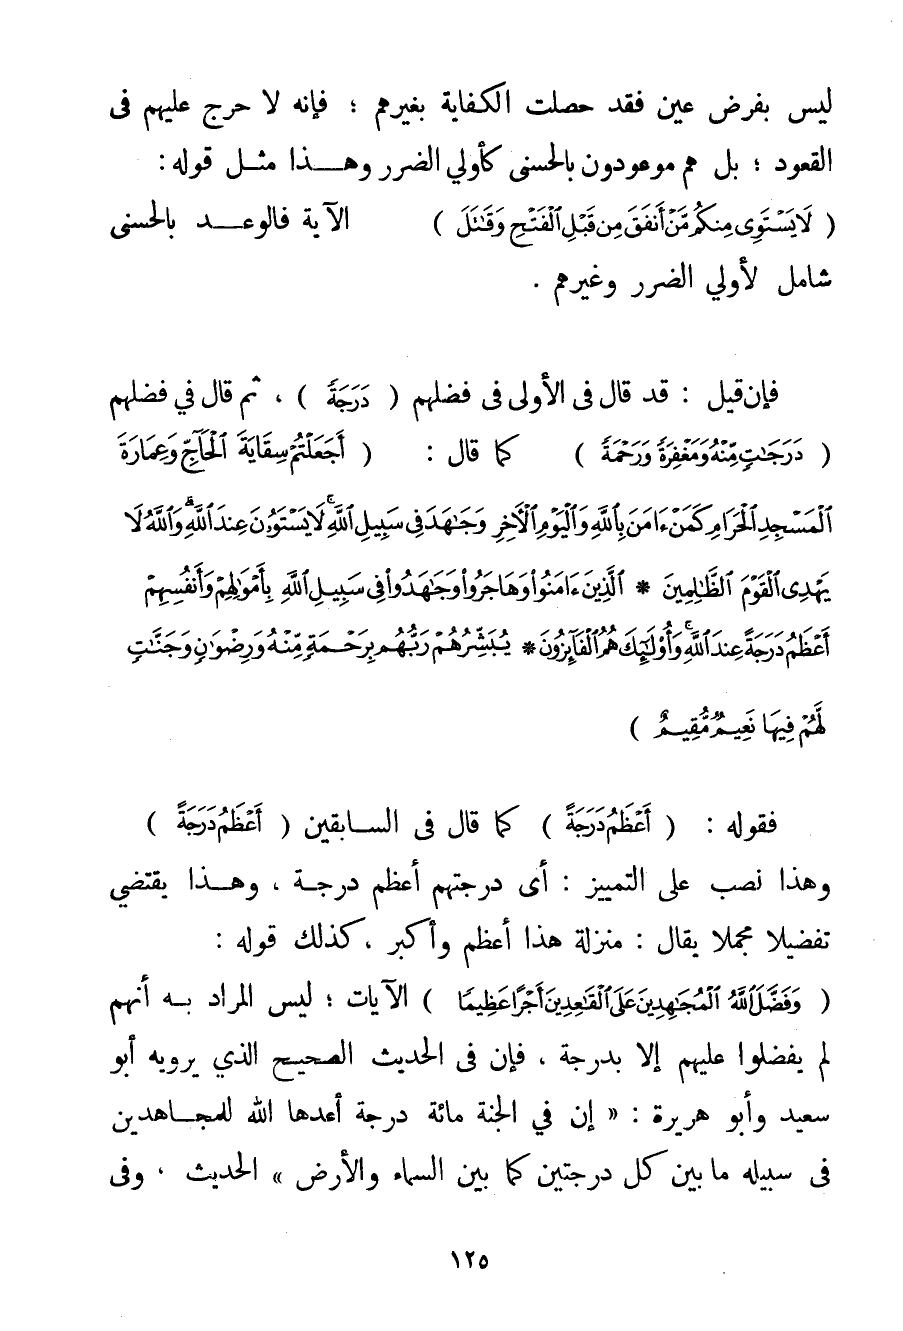 ليس بفرض عين فقد حصلت الكفاية بغيرهم ؛ فإنه لا حرج عليهم فى
القعود ؛ بل هم موعودون بالحسنى كأولي الضرر وهـــذا مثــل قوله :
( لَا يَسْتَوِى مِنكُم مَّنْ أَنفَقَ مِن قَبْلِ ٱلْفَتْحِ وَقَٰتَلَ ) الآية فالوعـــد بالحسنى
شامل لأولي الضرر وغيرهم .
فإن قيل : قد قال فى الأولى فى فضلهم ( دَرَجَةً ) ، ثم قال في فضلهم
( دَرَجَٰتٍ مِّنْهُ وَمَغْفِرَةً وَرَحْمَةً ) كما قال : ( أَجَعَلْتُمْ سِقَايَةَ ٱلْحَآجِّ وَعِمَارَةَ
ٱلْمَسْجِدِ ٱلْحَرَامِ كَمَنْ ءَامَنَ بِٱللَّهِ وَٱلْيَوْمِ ٱلْأَخِرِ وَجَٰهَدَ فِى سَبِيلِ ٱللَّهِ ۚ لَا يَسْتَوُۥنَ عِندَ ٱللَّهِ ۗ وَٱللَّهُ لَا
يَهْدِى ٱلْقَوْمَ ٱلظَّٰلِمِينَ * ٱلَّذِينَ ءَامَنُوا۟ وَهَاجَرُوا۟ وَجَٰهَدُوا۟ فِى سَبِيلِ ٱللَّهِ بِأَمْوَٰلِهِمْ وَأَنفُسِهِمْ
أَعْظَمُ دَرَجَةً عِندَ ٱللَّهِ ۚ وَأُو۟لَٰٓئِكَ هُمُ ٱلْفَآئِزُونَ * يُبَشِّرُهُمْ رَبُّهُم بِرَحْمَةٍ مِّنْهُ وَرِضْوَٰنٍ وَجَنَّٰتٍ
لَّهُمْ فِيهَا نَعِيمٌ مُّقِيمٌ )
فقوله : ( أَعْظَمُ دَرَجَةً ) كما قال فى السـابقين ( أَعْظَمُ دَرَجَةً )
وهذا نصب على التمييز : أى درجتهم أعظم درجـة ، وهــذا يقتضي
تفضيلا مجملا يقال : منزلة هذا أعظم وأكبر ، كذلك قوله :
( وَفَضَّلَ ٱللَّهُ ٱلْمُجَٰهِدِينَ عَلَى ٱلْقَٰعِدِينَ أَجْرًا عَظِيمًا ) الآيات ؛ ليس المراد بــه أنهم
لم يفضلوا عليهم إلا بدرجة ، فإن فى الحديث الصحيح الذي يرويه أبو
سعيد وأبو هريرة : « إن في الجنة مائة درجة أعدها الله للمجـاهدين
فى سبيله ما بين كل درجتين كما بين السماء والأرض » الحديث . وفى
١٢٥